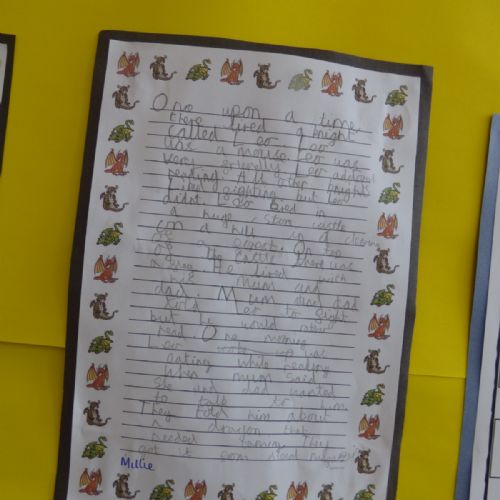 One upon a time
there lived a knight
called Leo. Leo
was a mouse. Leo was
very Leo
reading. All other knights
liked fighting but Leo
didnt. Leo lived in
a huge stone castle
on a hill in a clearing
of a forest. On
of the castle there was
He lived with
his mum and
dad. Mum and dad
Leo to fight
but he would rather
read. One morning
Leo was
eating while reading
When mum said
She and dad wanted
to talk to him.
They told him about
a dragon that
needed taming. They
got it from
Millie